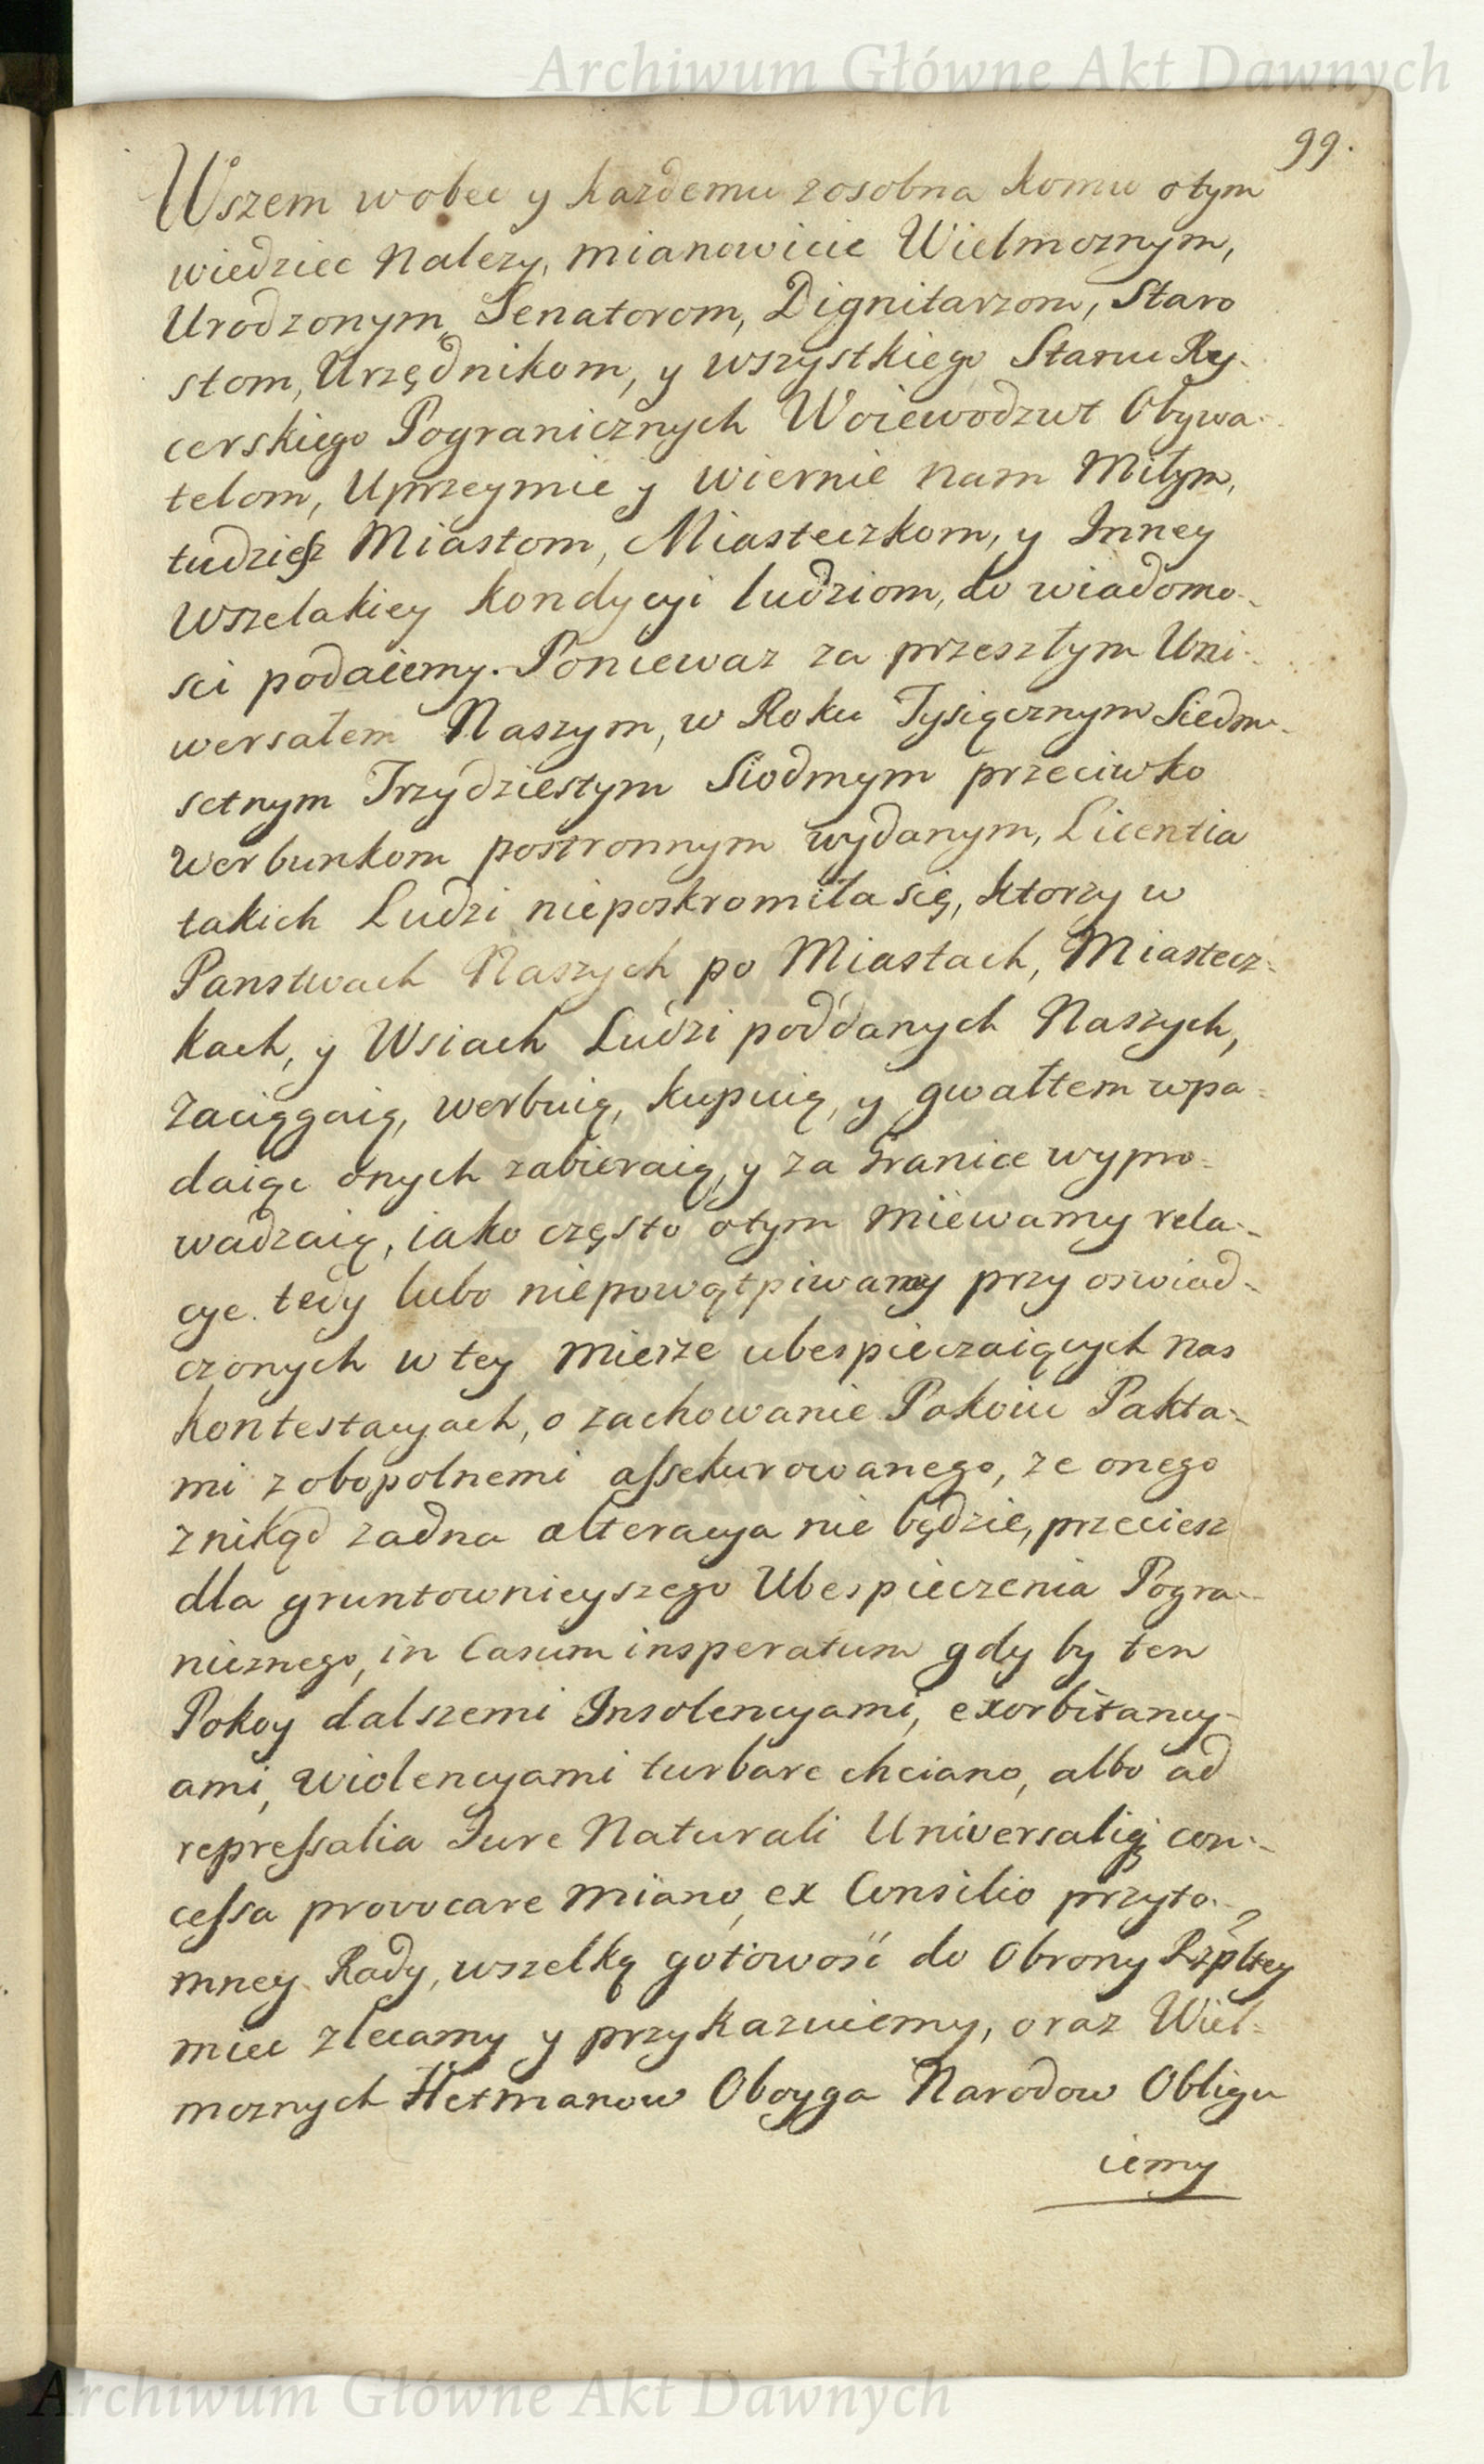 Archiwum Główne Akt Dawnych
99.
Wszem wobec y kazdemu zosobna komu otym
wiedziec Nalezy, mianowicie Wielmoznym,
Urodzonym, Senatorom, Dignitarzom, Staro
stom, Urzędnikom, y wszystkiego Stanu Ry-
cerskiego Pogranicznych Woiewodzwt Obywa-
telom, Uprzeymie y wiernie nam Miłym,
tudziesz Miastom, Miasteczkom, y Inney
wszelakiey kondycyi ludziom, do wiadomo-
sci podaiemy. Poniewaz za przeszłym Uni-
wersałem Naszym, w Roku Tysiącznym Siedm-
setnym Trzydziestym Siodmym przeciwko
werbunkom postronnym wydanym, Licentia
takich Ludzi nieposkromiła się, ktorzy w
Panstwach Naszych po Miastach, Miastecz-
kach, y Wsiach Ludzi poddanych Naszych,
zaciągaią, werbuią, kupuią, y gwałtem wpa-
daiąc onych zabieraią, y za Granice wypro-
wadzaią, iako często otym miewamy rela-
cye. tedy lubo niepowątpiwamy przy oswiad-
czonych w tey mierze ubespieczaiących nas
kontestacyach, o zachowanie Pokoiu Pakta-
mi z obopolnemi assekurowanego, ze onego
znikąd zadna alteracya nie będzie, przeciesz
dla gruntownieyszego Ubespieczenia Pogra-
nicznego, in Casum insperatum gdy by ten
Pokoy dalszemi Insolencyami, exorbitancy-
ami, wiolencyami turbare chciano, albo ad
repressalia Iure Naturali Universaliq; con-
cessa provocare miano, ex Consilio przyto-
mney Rady, wszelką gotowość do Obrony Rzpltey
miec zlecamy y przykazuiemy, oraz Wiel-
moznych Hetmanow Oboyga Narodow Obligu
iemy
Archiwum Główne Akt Dawnych